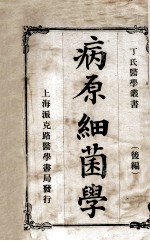 丁氏醫學叢書
（後編）
病原細菌學
上海派克路醫學書局發行